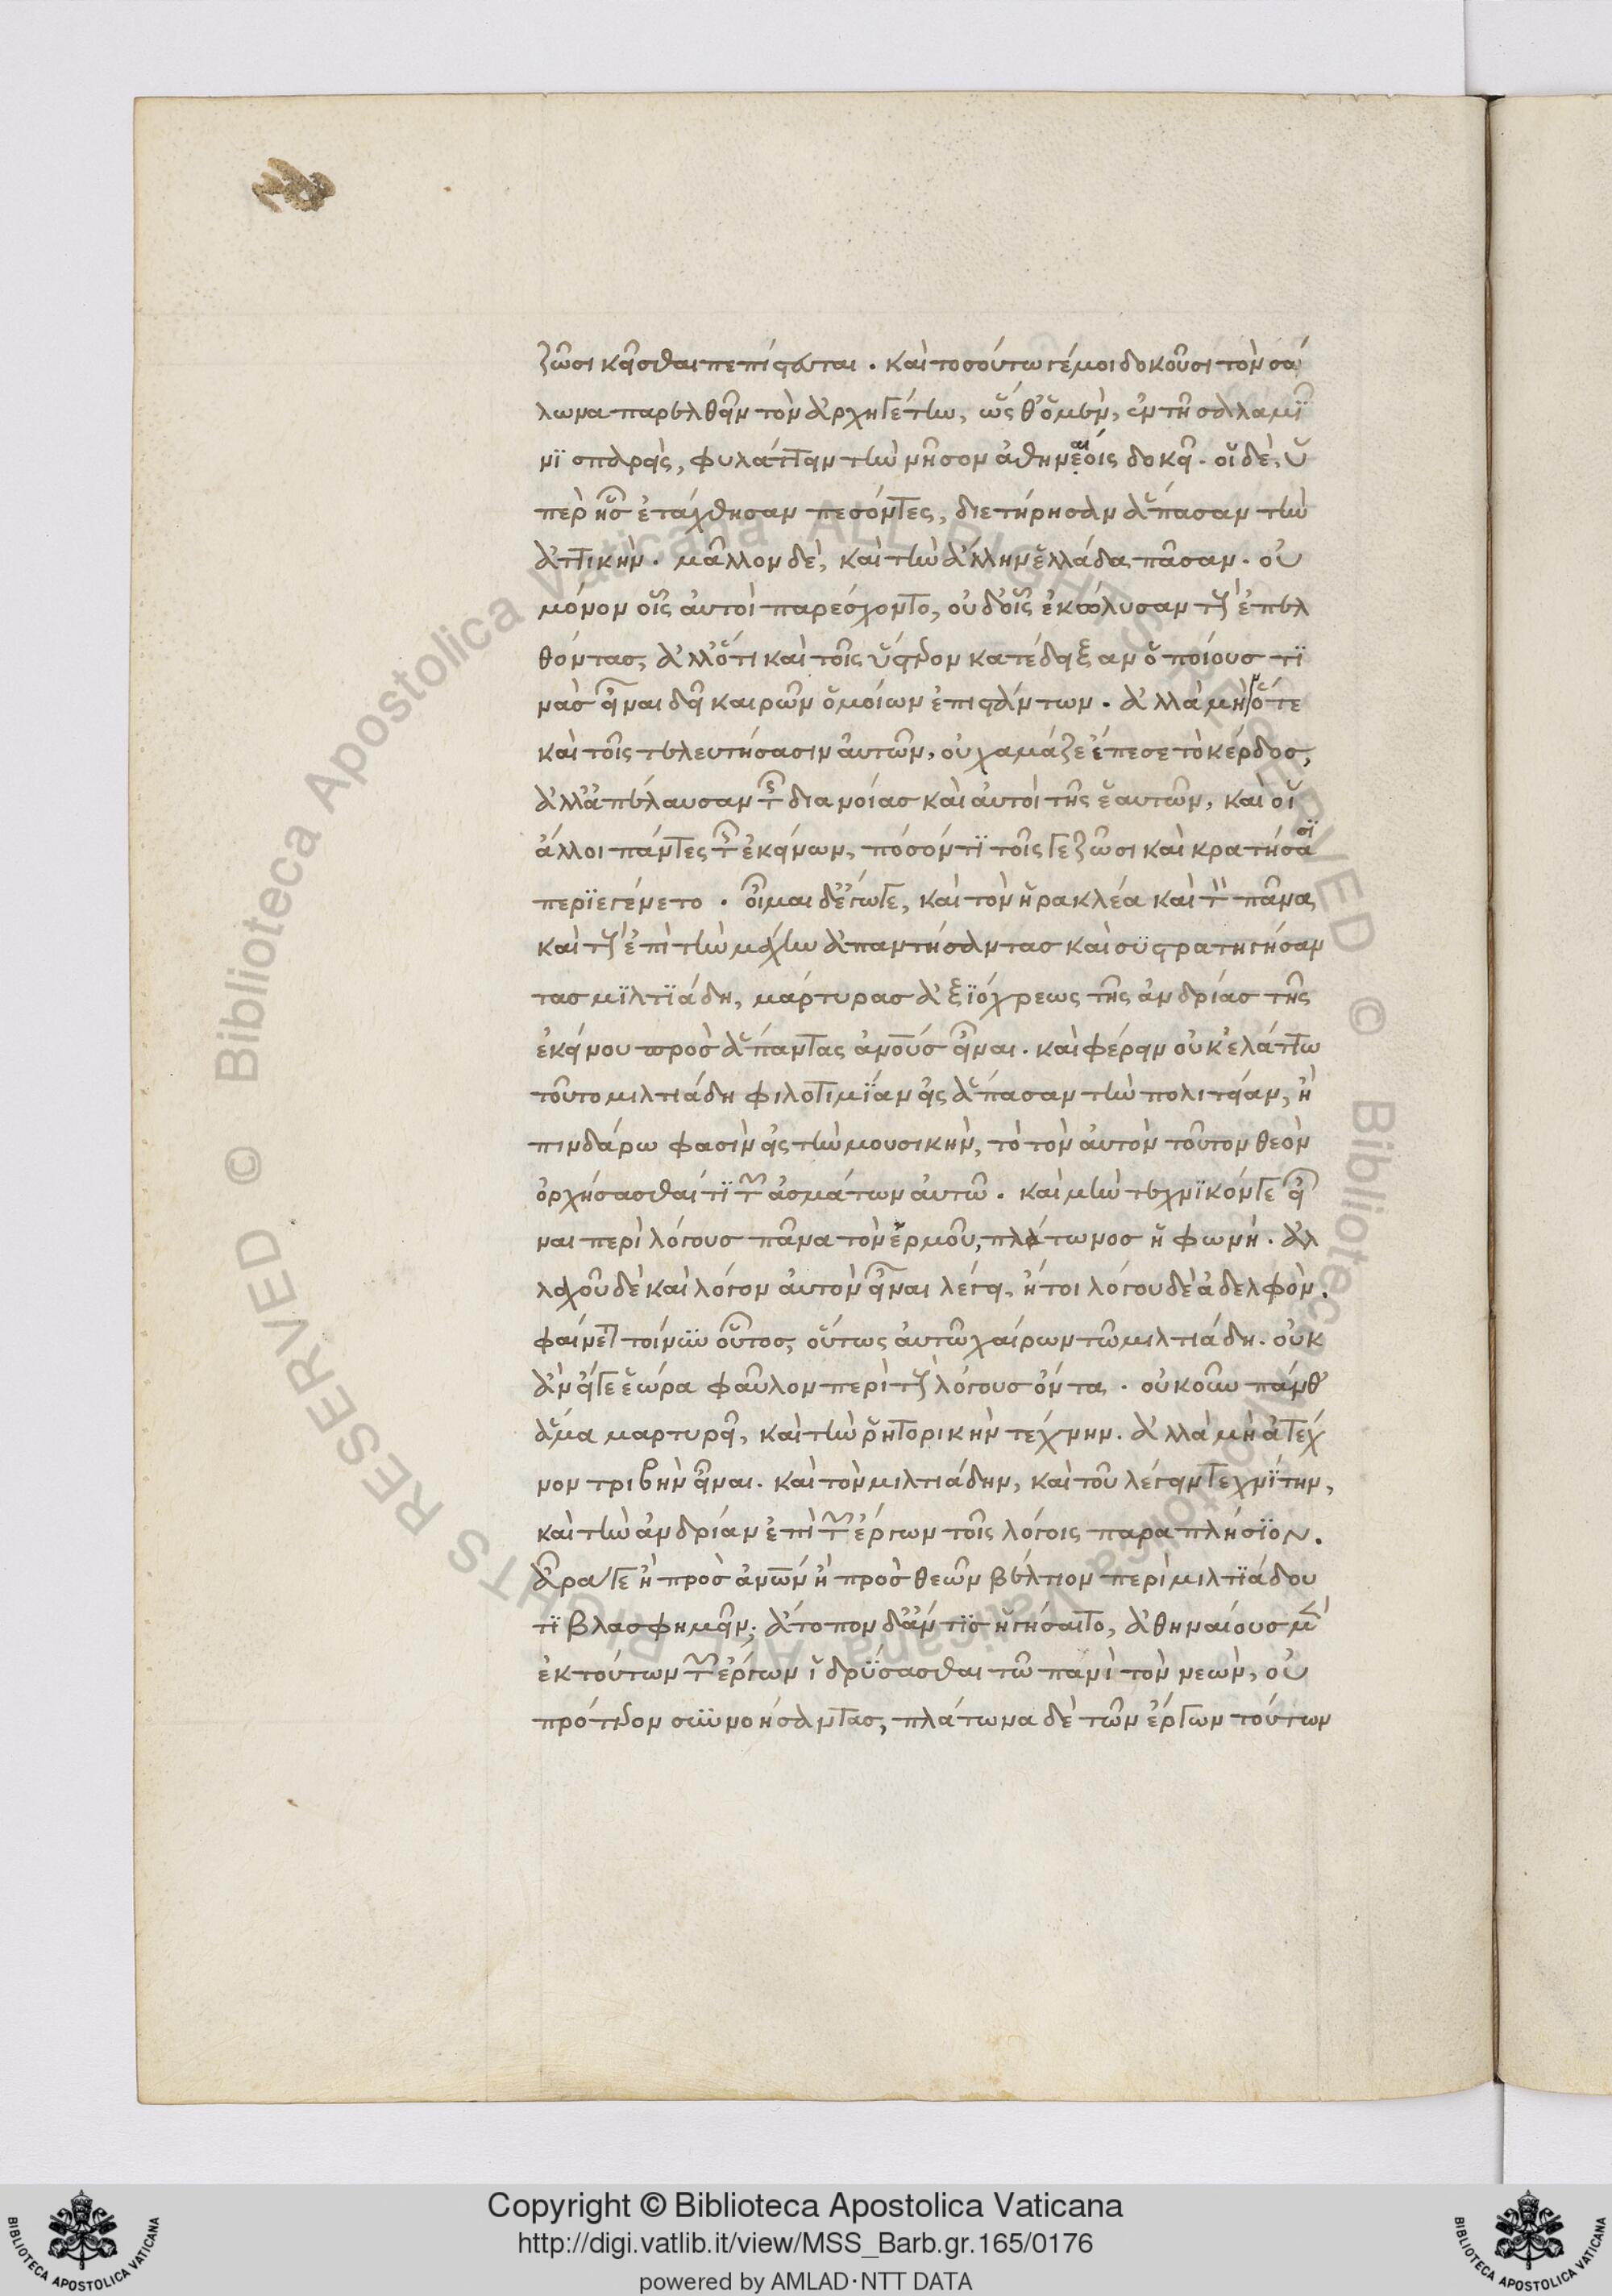 ζῶσι κεῖσθαι πεπίστευται. καὶ τοσούτω γέμοι δοκοῦσι τὸν σό
λωνα παρελθεῖν τὸν ἀρχηγέτην, ὥς θ' ὁ μὲν, ἐν τῆ σαλαμῖ
νι σπαρεὶς, φυλάττειν τὴν νῆσον ἀθηναίοις δοκεῖ. οἱ δὲ, ὑ
πὲρ ἧς ἐτάχθησαν πεσόντες, διετήρησαν ἅπασαν τὴν
ἀττικήν. μᾶλλον δὲ, καὶ τὴν ἄλλην ἑλλάδα πᾶσαν. οὐ
μόνον οἷς αὐτοὶ παρέσχοντο, οὐδ' οἷς ἐκώλυσαν τοὺς ἐπελ
θόντας, ἀλλ' ὅτι καὶ τοῖς ὕστερον κατέδειξαν ὁποίους τι
νὰς εἶναι δεῖ καιρῶν ὁμοίων ἐπιστάντων. ἀλλὰ μὴν ὅτε
καὶ τοῖς τελευτήσασιν αὐτῶν, οὐ χαμάζε ἔπεσε τὸ κέρδος,
ἀλλ' ἀπέλαυσαν τῆς διανοίας καὶ αὐτοὶ τῆς ἑαυτῶν, καὶ οἱ
ἄλλοι πάντες τῆς ἐκείνων, πόσόν τι τοῖς γε ζῶσι καὶ κρατήσασι
περιεγένετο. οἶμαι δ' ἔγωγε, καὶ τὸν ἡρακλέα καὶ τὸν πᾶνα,
καὶ τοὺς ἐπὶ τὴν μάχην ἀπαντήσαντας καὶ συστρατηγήσαν
τας μιλτιάδη, μάρτυρας ἀξιόχρεως τῆς ἀνδρίας τῆς
ἐκείνου πρὸς ἅπαντας ἀνους εἶναι. καὶ φέρειν οὐκ ἐλάττω
τοῦτο μιλτιάδη φιλοτιμίαν εἰς ἅπασαν τὴν πολιτείαν, ἢ
πινδάρω φασὶν εἰς τὴν μουσικὴν, τὸ τὸν αὐτὸν τοῦτον θεὸν
ὀρχήσασθαί τι τῶν ἀσμάτων αὐτῶ. καὶ μὴν τεχνικόν γε εἶ
ναι περὶ λόγους πᾶνα τὸν ἑρμοῦ, πλάτωνος ἡ φωνή. ἀλ
λαχοῦ δὲ καὶ λόγον αὐτὸν εἶναι λέγει, ἤτοι λόγου δὲ ἀδελφόν.
φαίνεται τοίνυν οὗτος, οὕτως αὐτῶ χαίρων τῶ μιλτιάδη. οὐκ
ἂν εἴ γε ἑώρα φαῦλον περὶ τοὺς λόγους ὄντα. οὐκοῦν πάνθ'
ἅμα μαρτυρεῖ, καὶ τὴν ῥητορικὴν τέχνην. ἀλλὰ μὴ ἄτεχ
νον τριβὴν εἶναι. καὶ τὸν μιλτιάδην, καὶ τοῦ λέγειν τεχνίτην,
καὶ τὴν ἀνδρίαν ἐπὶ τῶν ἔργων τοῖς λόγοις παραπλήσιον.
ἆρά γε ἢ πρὸς ἀνων ἢ πρὸς θεῶν βέλτιον περὶ μιλτιάδου
τι βλασφημεῖν; ἄτοπον δ' ἄν τις ἡγήσαιτο, ἀθηναίους μὲν
ἐκ τούτων τῶν ἔργων ἱδρύσασθαι τῶ πανὶ τὸν νεὼν, οὐ
πρότερον συννοήσαντας, πλάτωνα δὲ τῶν ἔργων τούτων
Copyright © Biblioteca Apostolica Vaticana
http://digi.vatlib.it/view/MSS_Barb.gr.165/0176
powered by AMLAD·NTT DATA